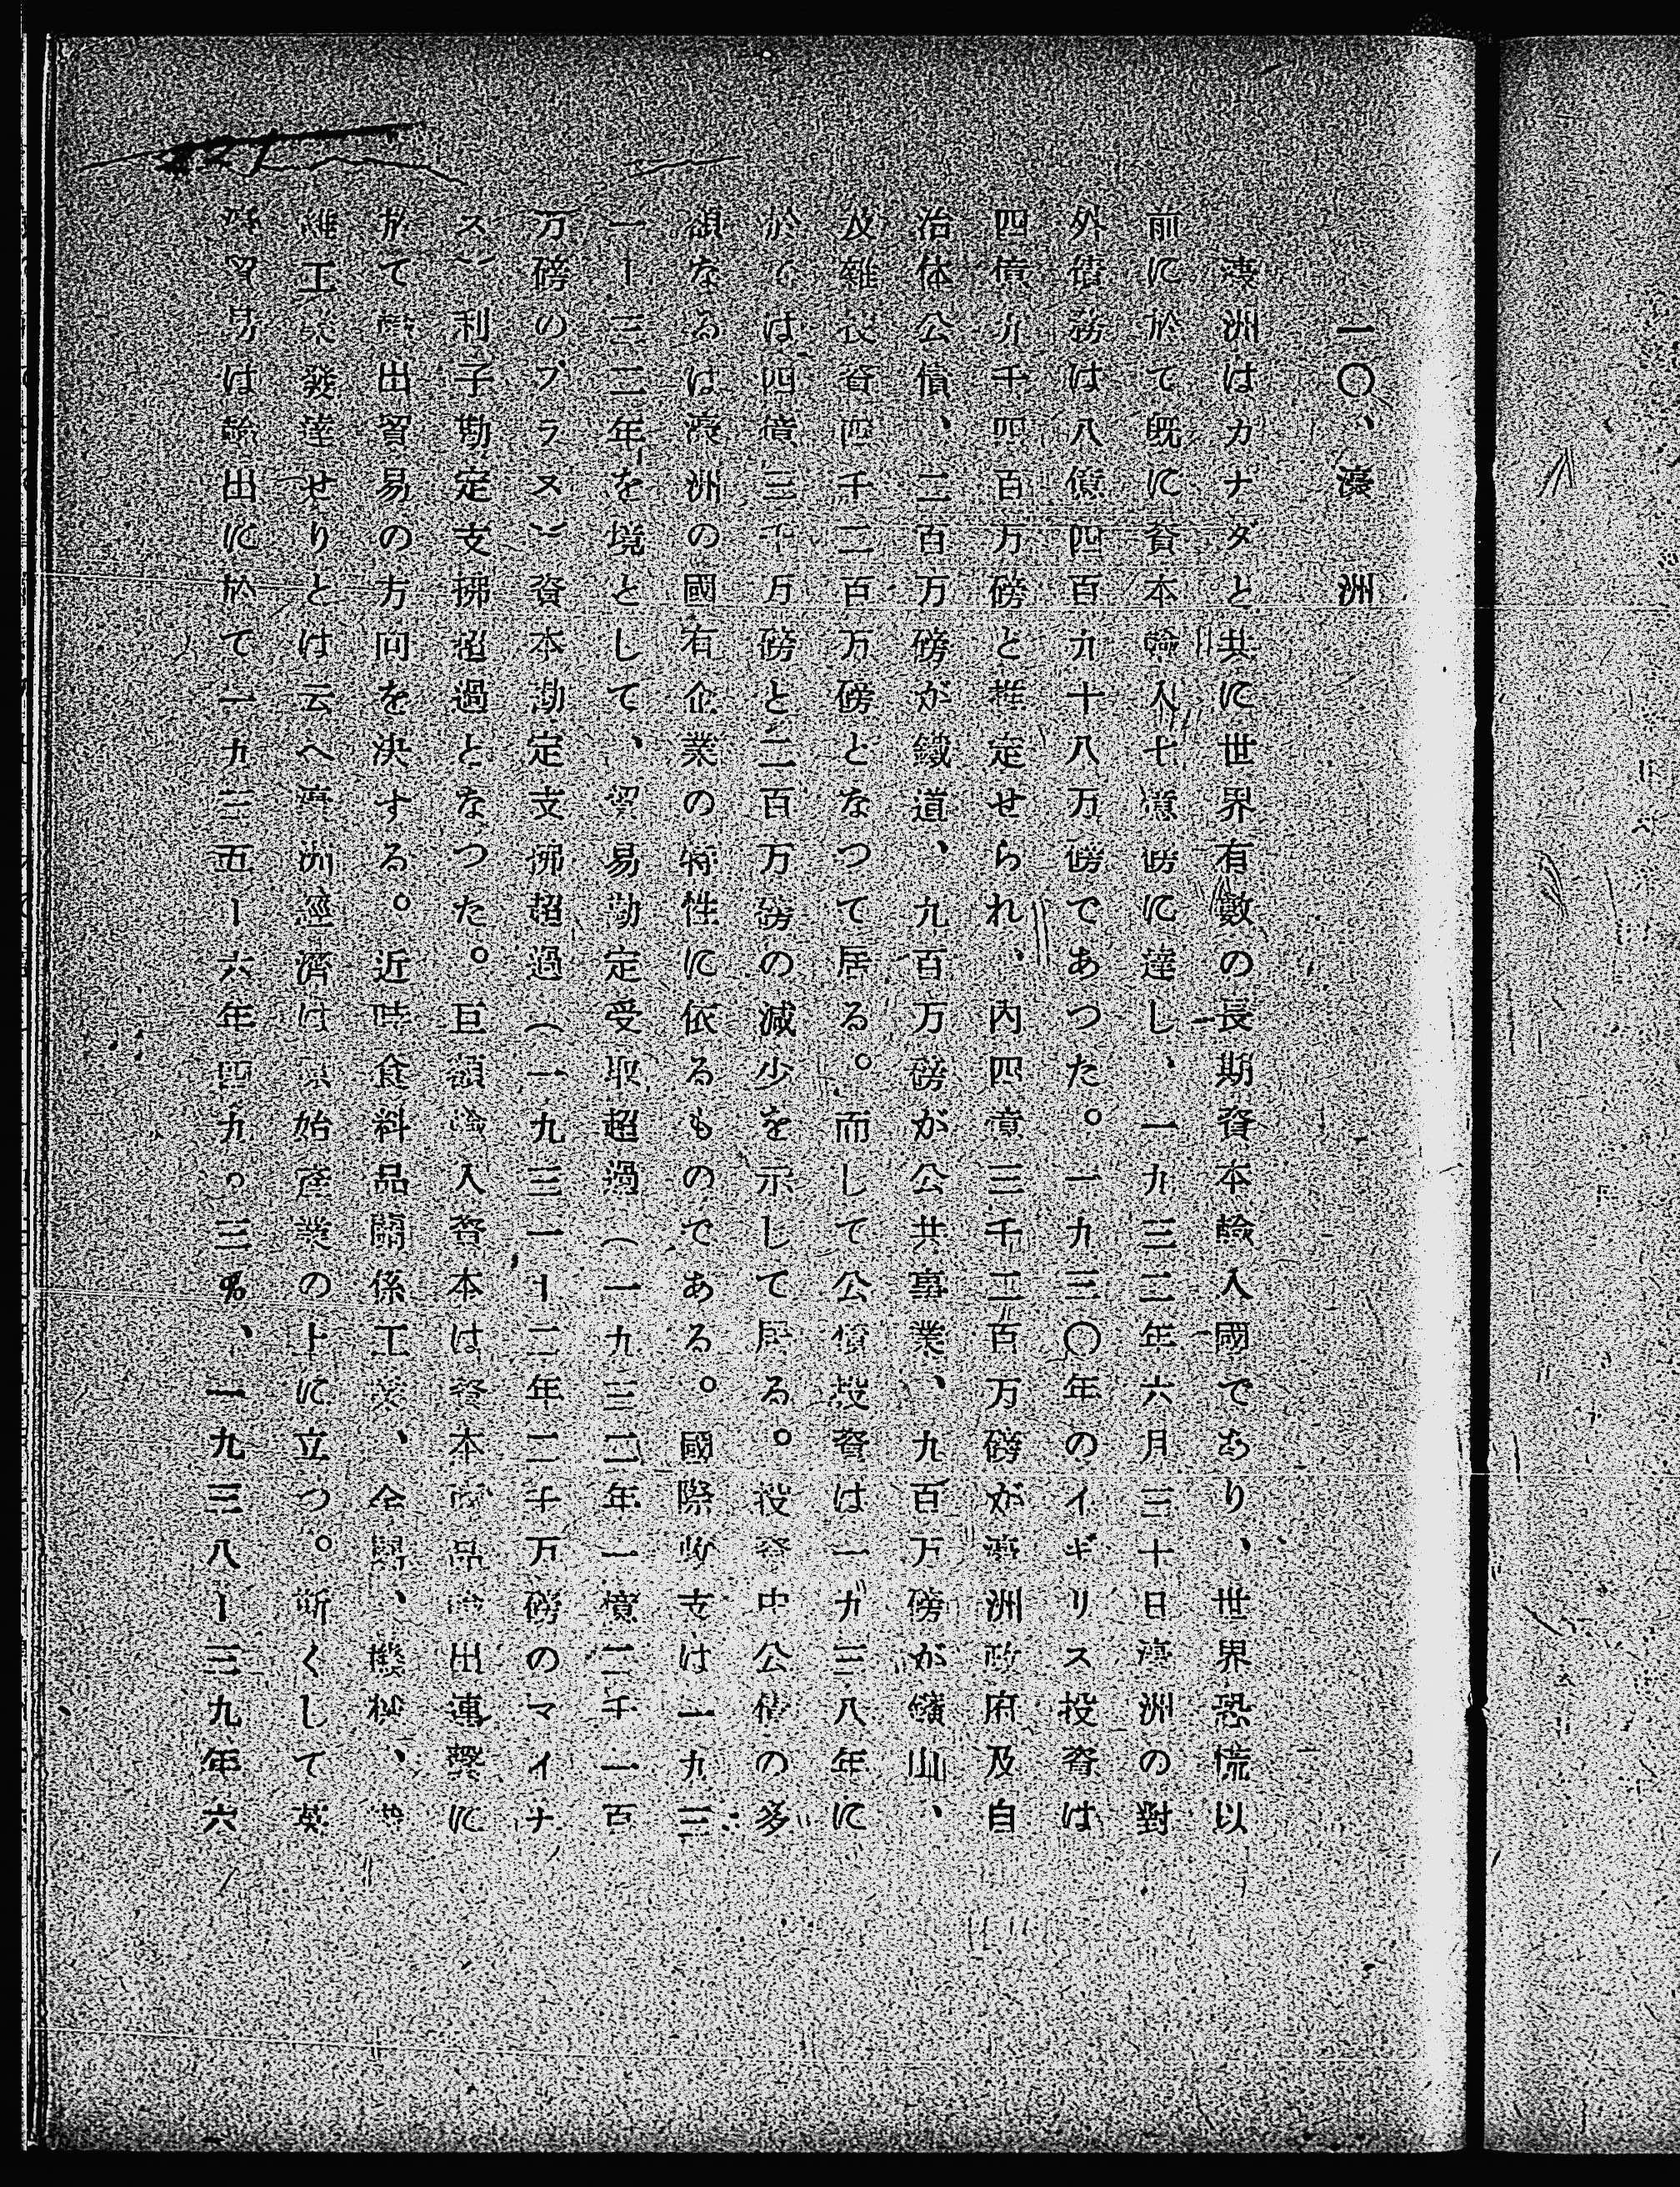 一〇、濠洲
濠洲はカナダと共に世界有數の長期資本輸入國であり、世界恐慌以
前に於て既に資本輸入七億磅に達し、一九三二年六月三十日濠洲の對
外債務は八億四百九十八万磅であつた。一九三〇年のイギリス投資は
四億九千四百万磅と推定せられ、内四億三千二百万磅が濠洲政府及自
治体公債、二百万磅が鐵道、九百万磅が公共事業、九百万磅が鑛山、
及雜投資四千二百万磅となつて居る。而して公債投資は一九三八年に
於ては四億三千万磅と二百万磅の減少を示して居る。投資中公債の多
額なるは濠洲の國有企業の特性に依るものである。國際收支は一九三
一ー三二年を境として、貿易勘定受取超過(一九三二年一億二千一百
万磅のプラス)資本勘定支拂超過(一九三一ー二年二千万磅のマイナ
ス)利子勘定支拂超過となつた。巨額輸入資本は資本商品輸出連繫に
於て輸出貿易の方向を決する。近時食料品關係工業、金屬、機械、
維工業發達せりとは云へ濠洲經濟は原始産業の上に立つ。斯くして英
貿易は輸出に於て一九三五ー六年四九。三%、一九三八ー三九年六